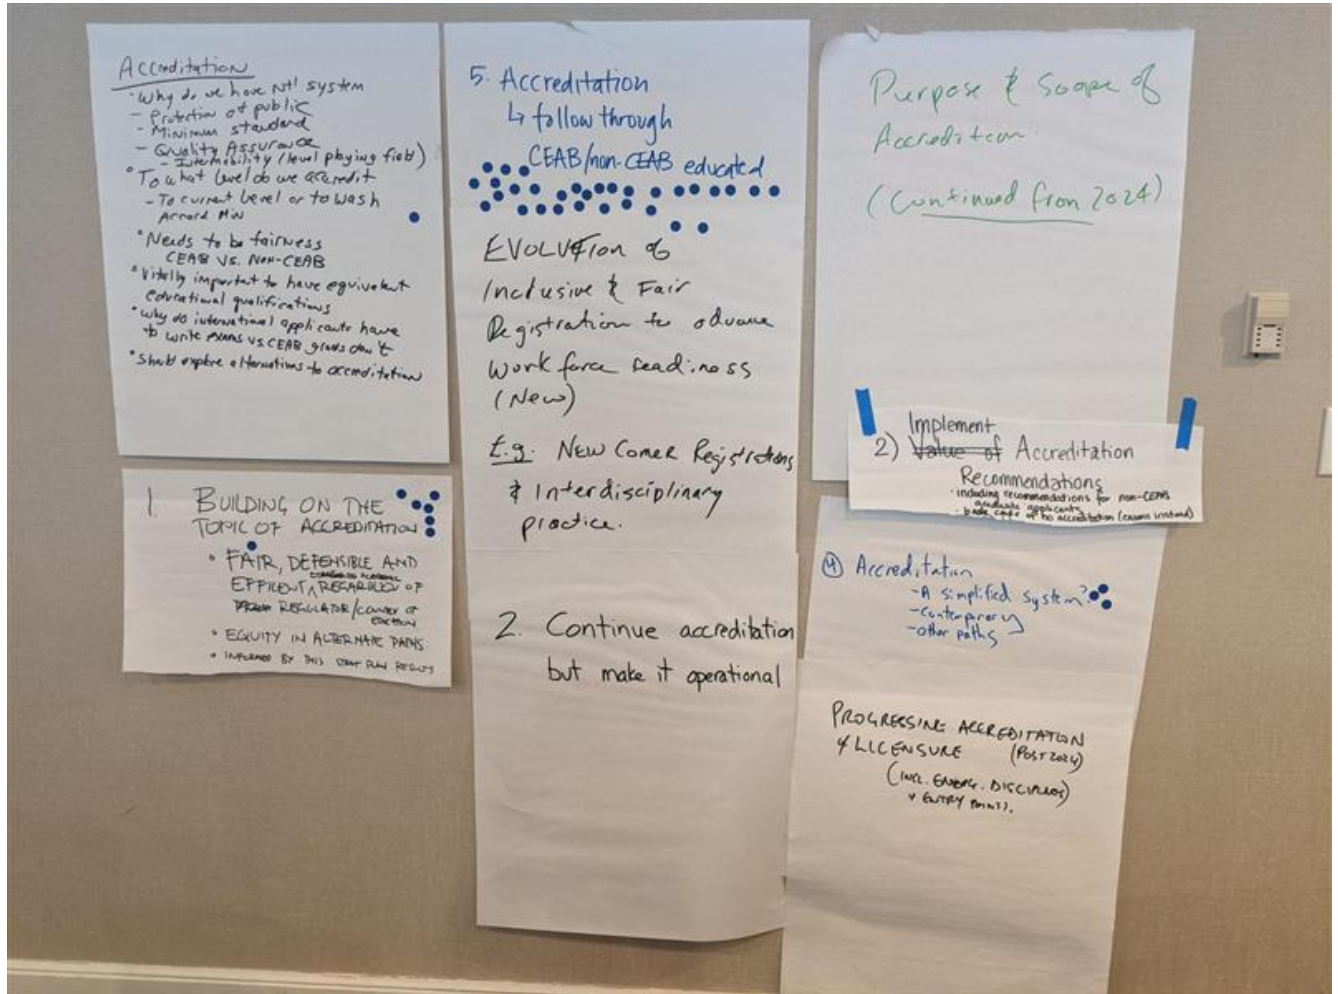 Accreditation
• Why do we have Nt'l system
- Protection of public
- Minimum standard
- Quality Assurance
- Inter mobility (level playing field)
• To what level do we accredit
- To current level or to Wash
Accord Min
• Needs to be fairness
CEAB VS. Non-CEAB
• Vitally important to have equivalent
educational qualifications
• Why do international applicants have
to write exams vs. CEAB grads don't
• Should explore alternatives to accreditation
1. BUILDING ON THE
TOPIC OF ACCREDITATION
• FAIR, DEFENSIBLE AND
EFFICIENT, REGARDLESS OF
REGULATOR/COUNTRY OF
• EQUITY IN ALTERNATE PATHS
• INFORMED BY THIS STRAT PLAN RESULTS
5. Accreditation
↳ follow through
CEAB/non-CEAB educated
EVOLUTION of
Inclusive & Fair
Registration to advance
Work force readiness
(New)
E.g. New Comer Registrations
& Interdisciplinary
practice.
2. Continue accreditation
but make it operational
Purpose & Scope of
Accreditation
(Continued from 2024)
Implement
2) Value of Accreditation
Recommendations
· including recommendations for non-CEAB
graduate applicants
· of no accreditation (exams instead)
④ Accreditation
- A simplified system?
- Contemporary
- Other paths
PROGRESSING ACCREDITATION
& LICENSURE (POST 2024)
(INCL. EMERG. DISCIPLINES)
& ENTRY POINTS).